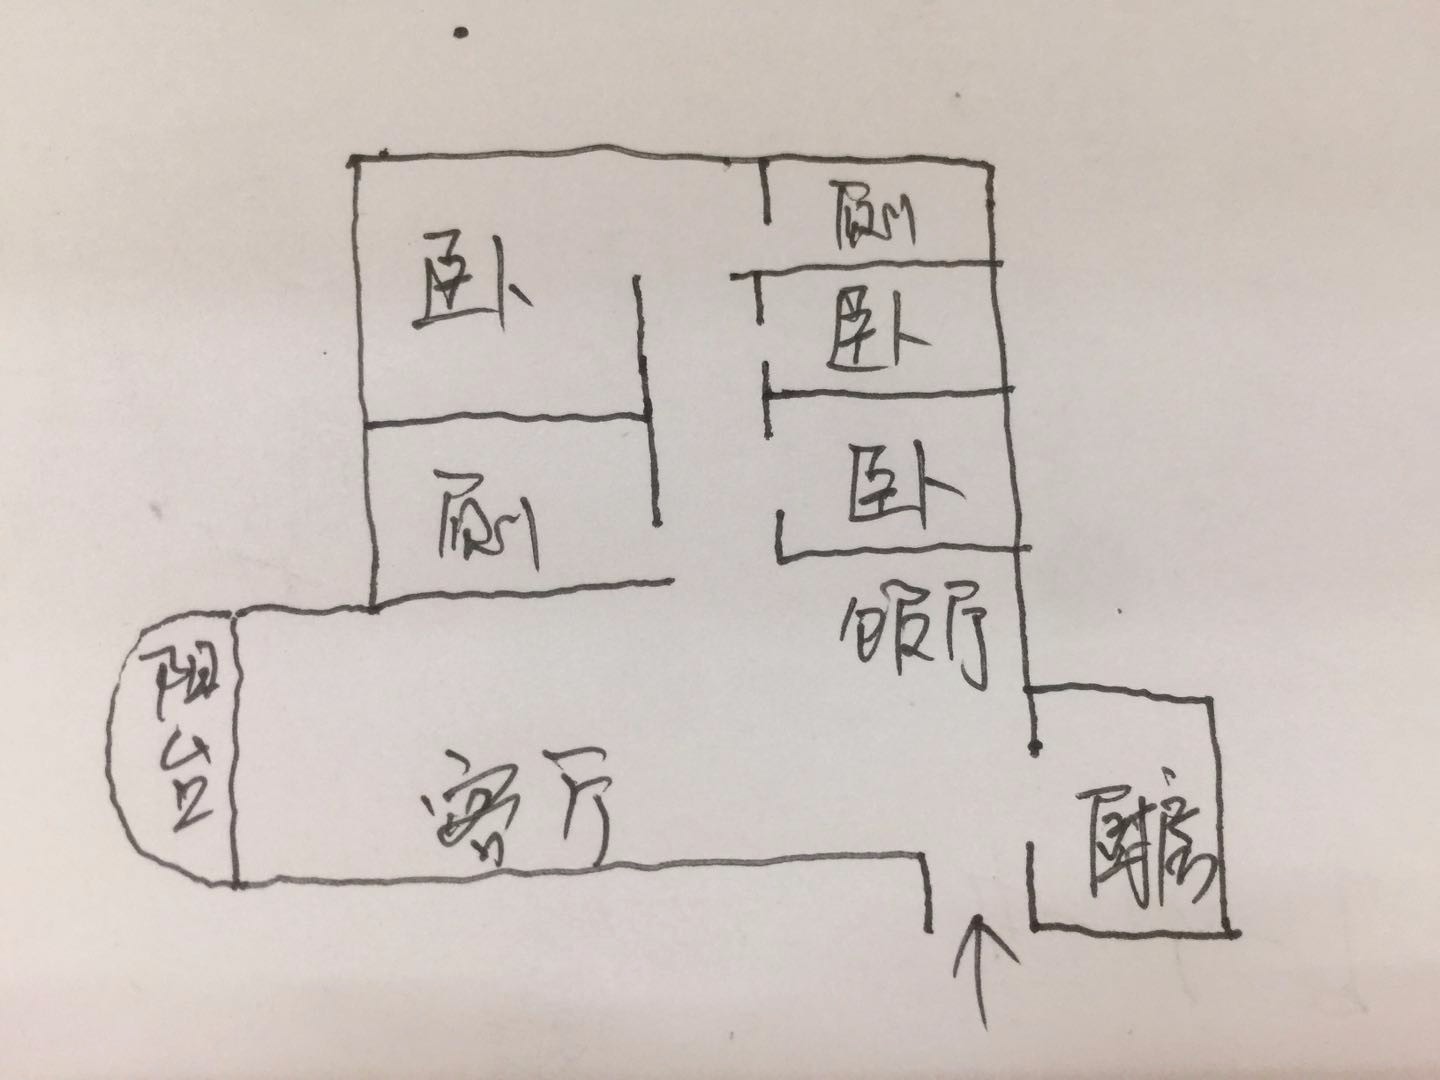 厕
卧
卧
卧
厕
饭厅
阳台
客厅
厨房